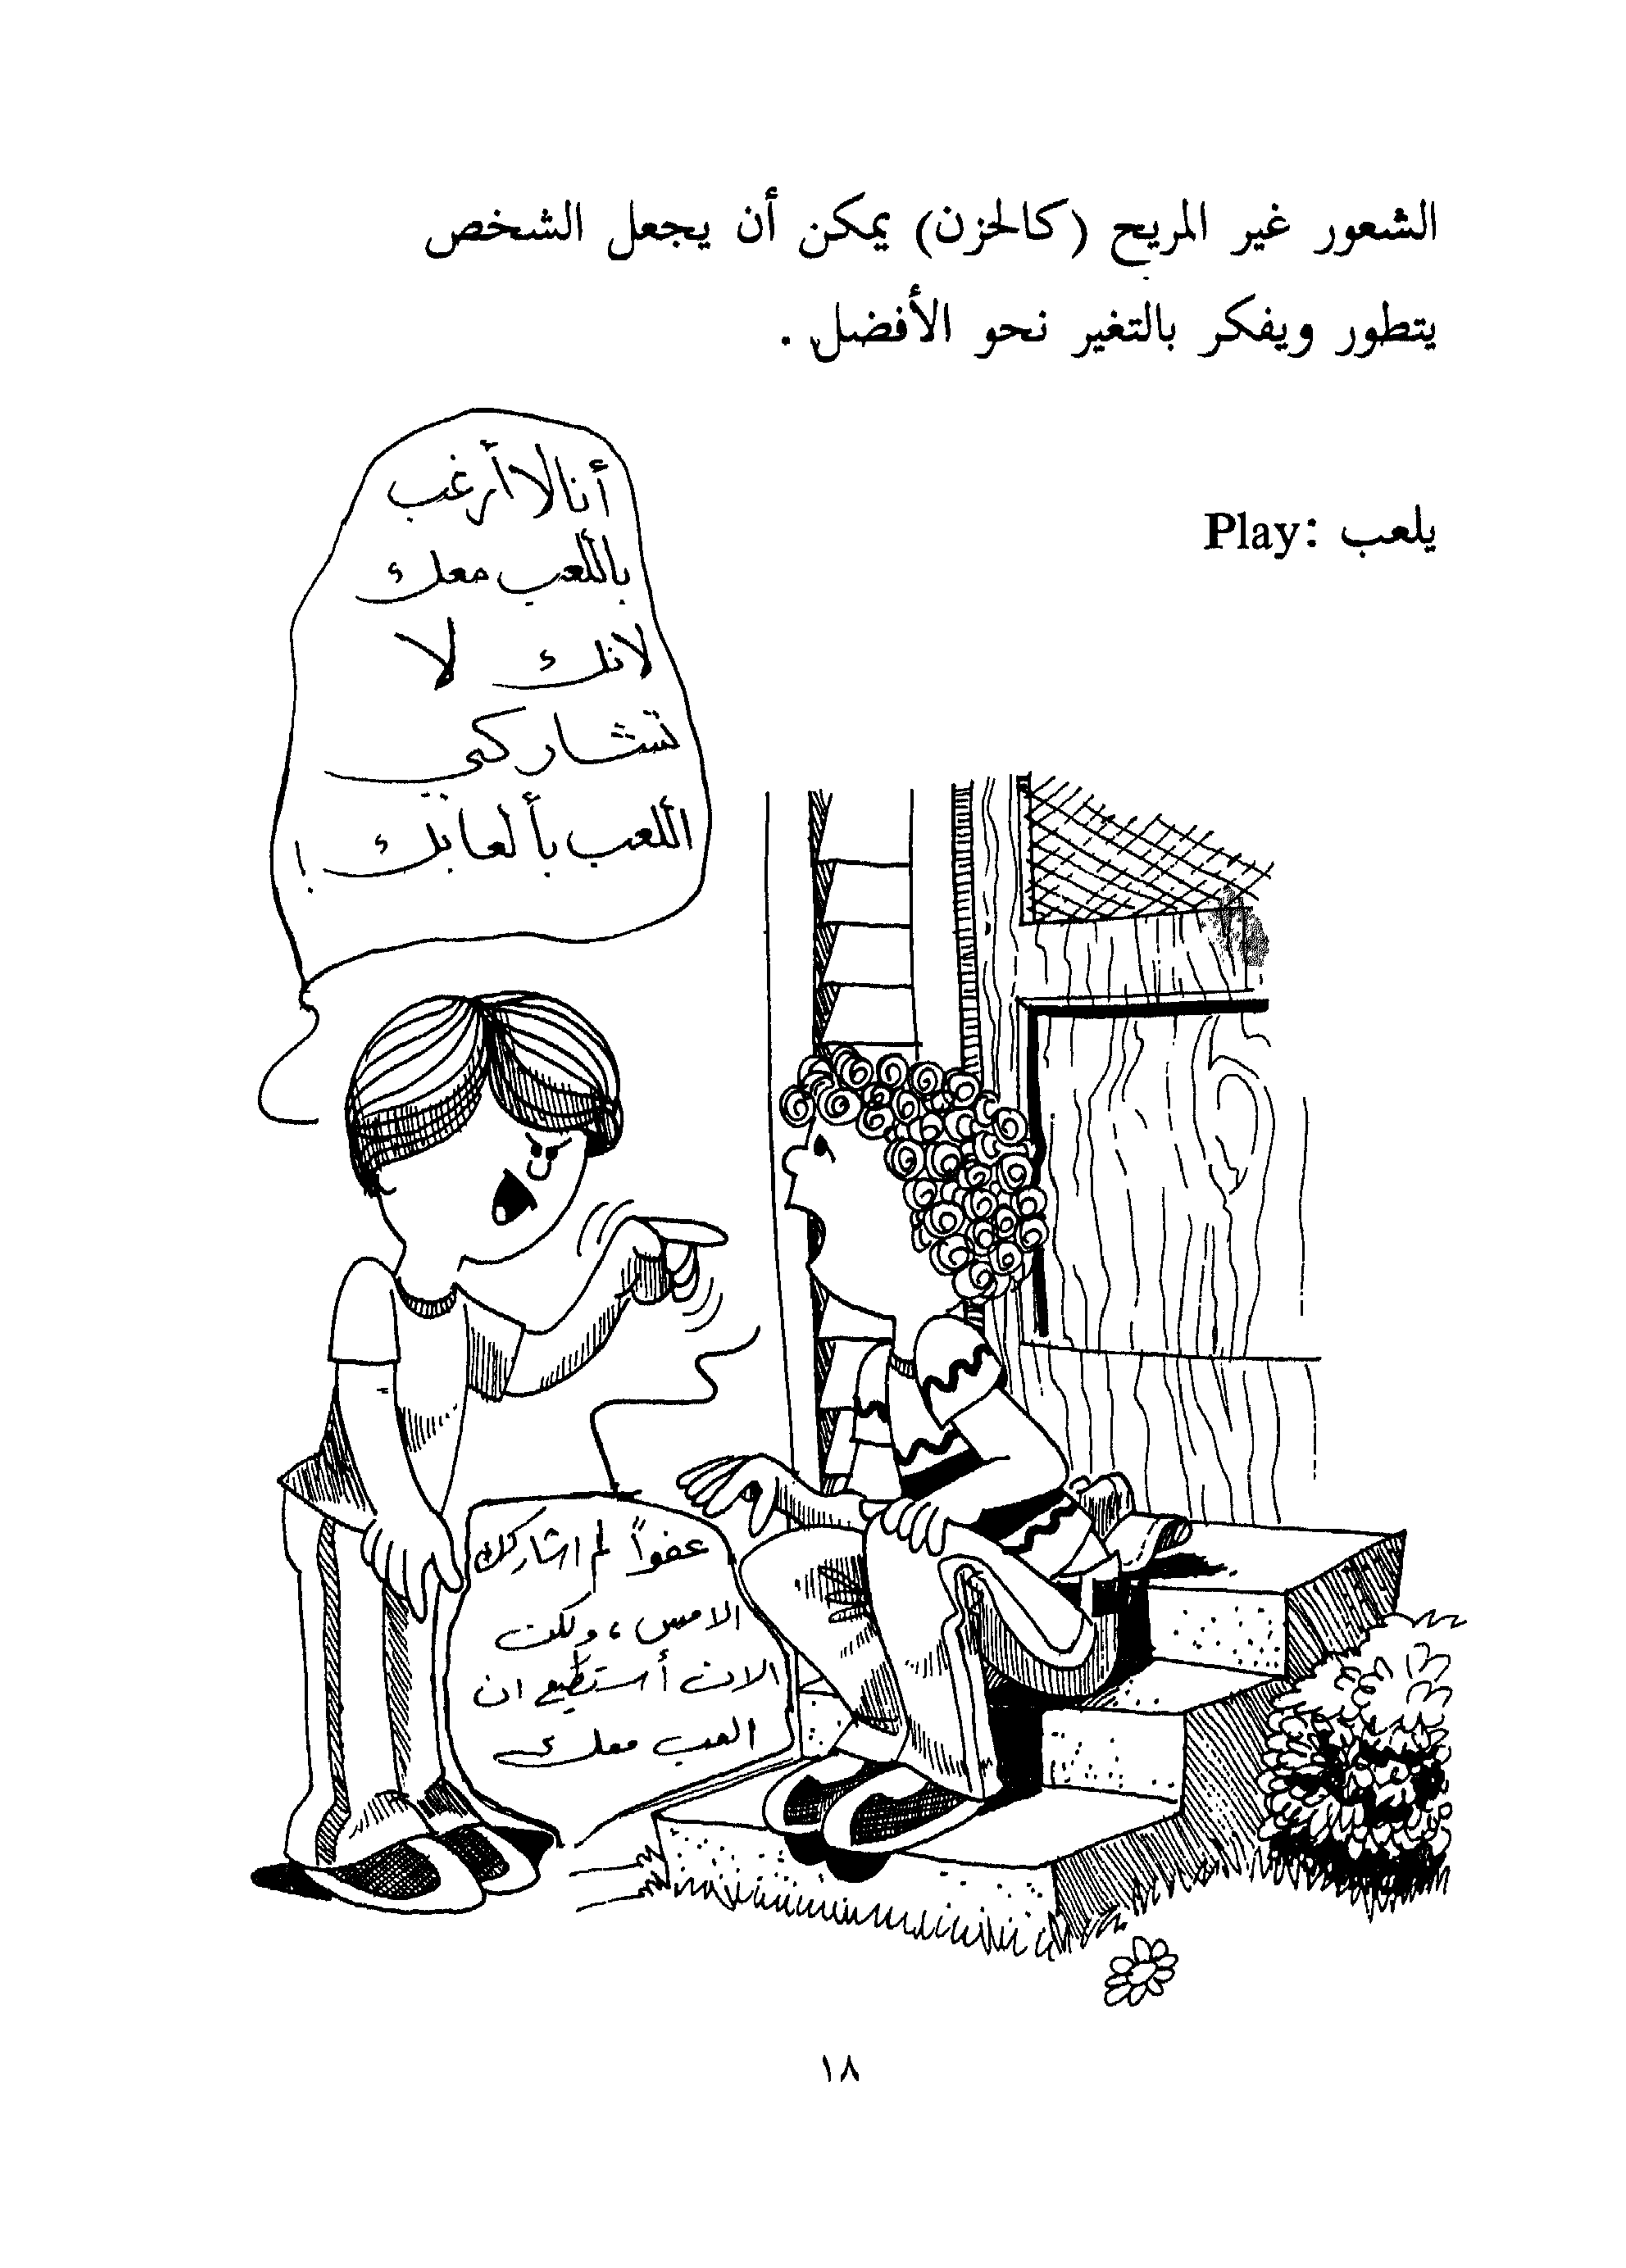 الشعور غير المريح (كالحزن) يمكن أن يجعل الشخص
يتطور ويفكر بالتغير نحو الأفضل .
يلعب :Play
أنا لا أرغب
باللعب معك
لانك لا
تشاركني
اللعب بألعابك !
عفواً لم اشاركك
الامس ، ولكن
الان أستطيع ان
العب معك
١٨